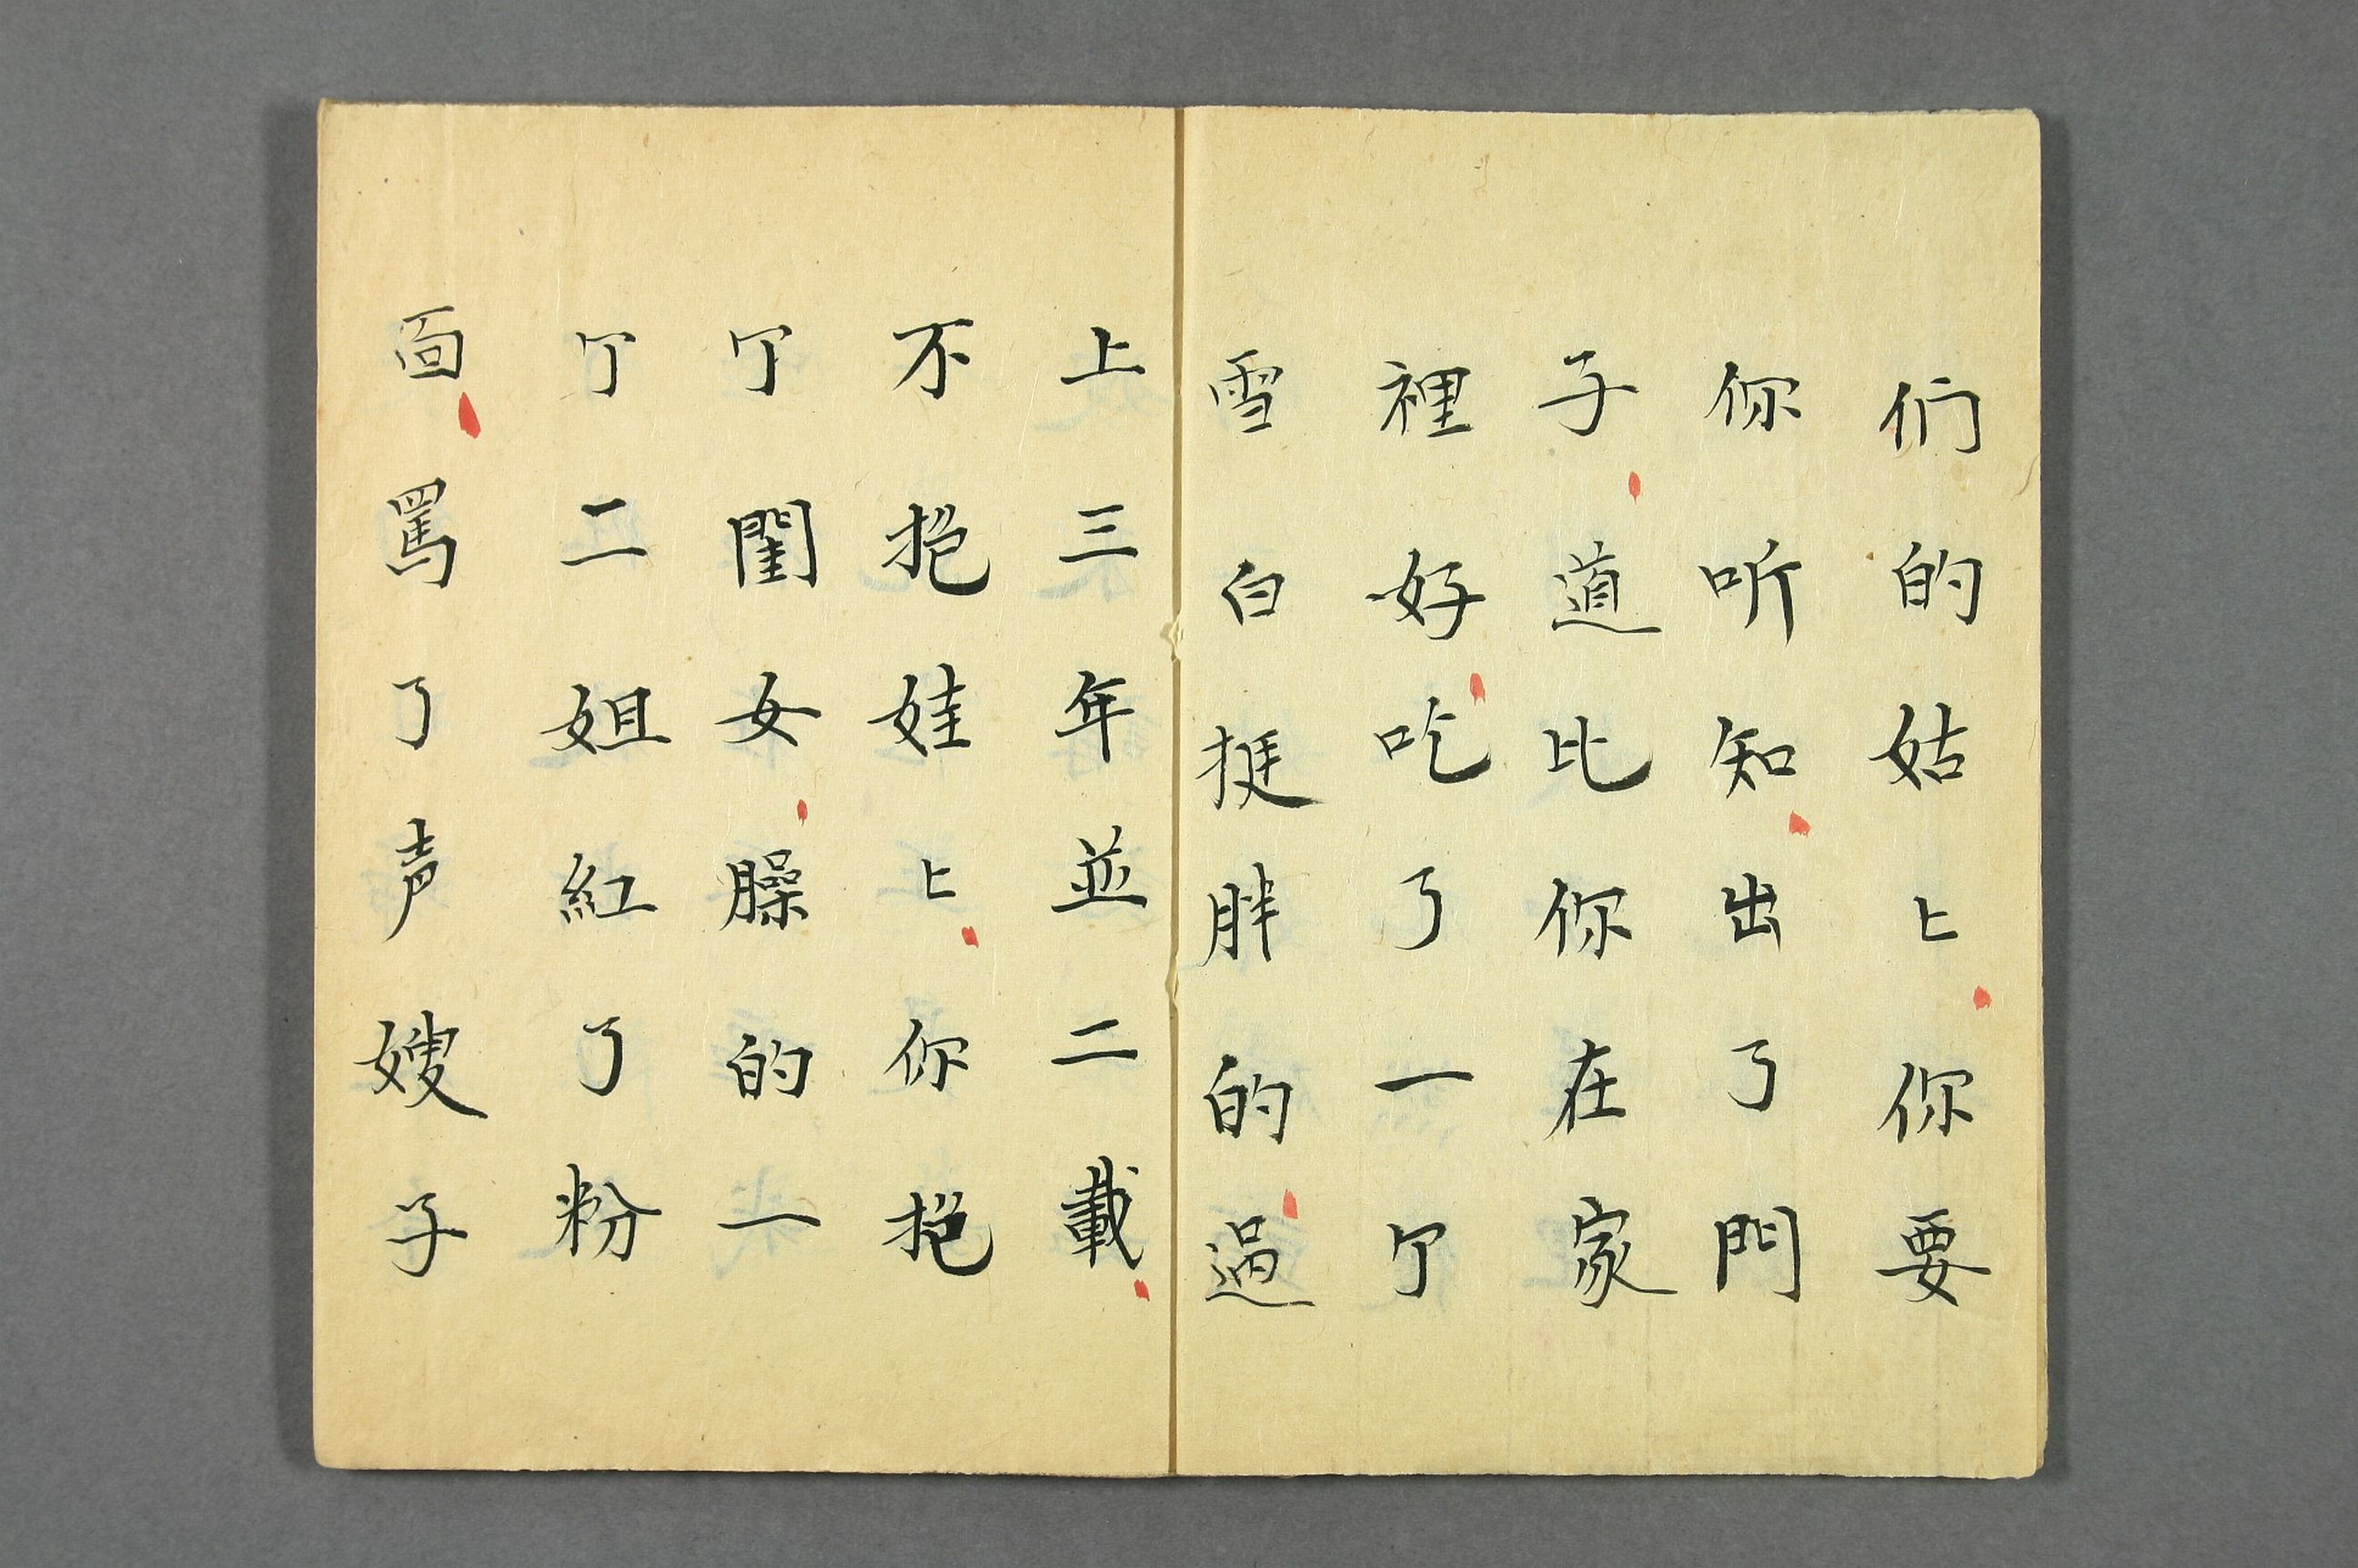 们的姑〻你要
你听知出了門
子道比你在家
裡好吃了一个
雪白挺胖的過
上三年並二載
不抱娃〻你抱
个閨女臊的一
个二姐紅了粉
面罵了声嫂子